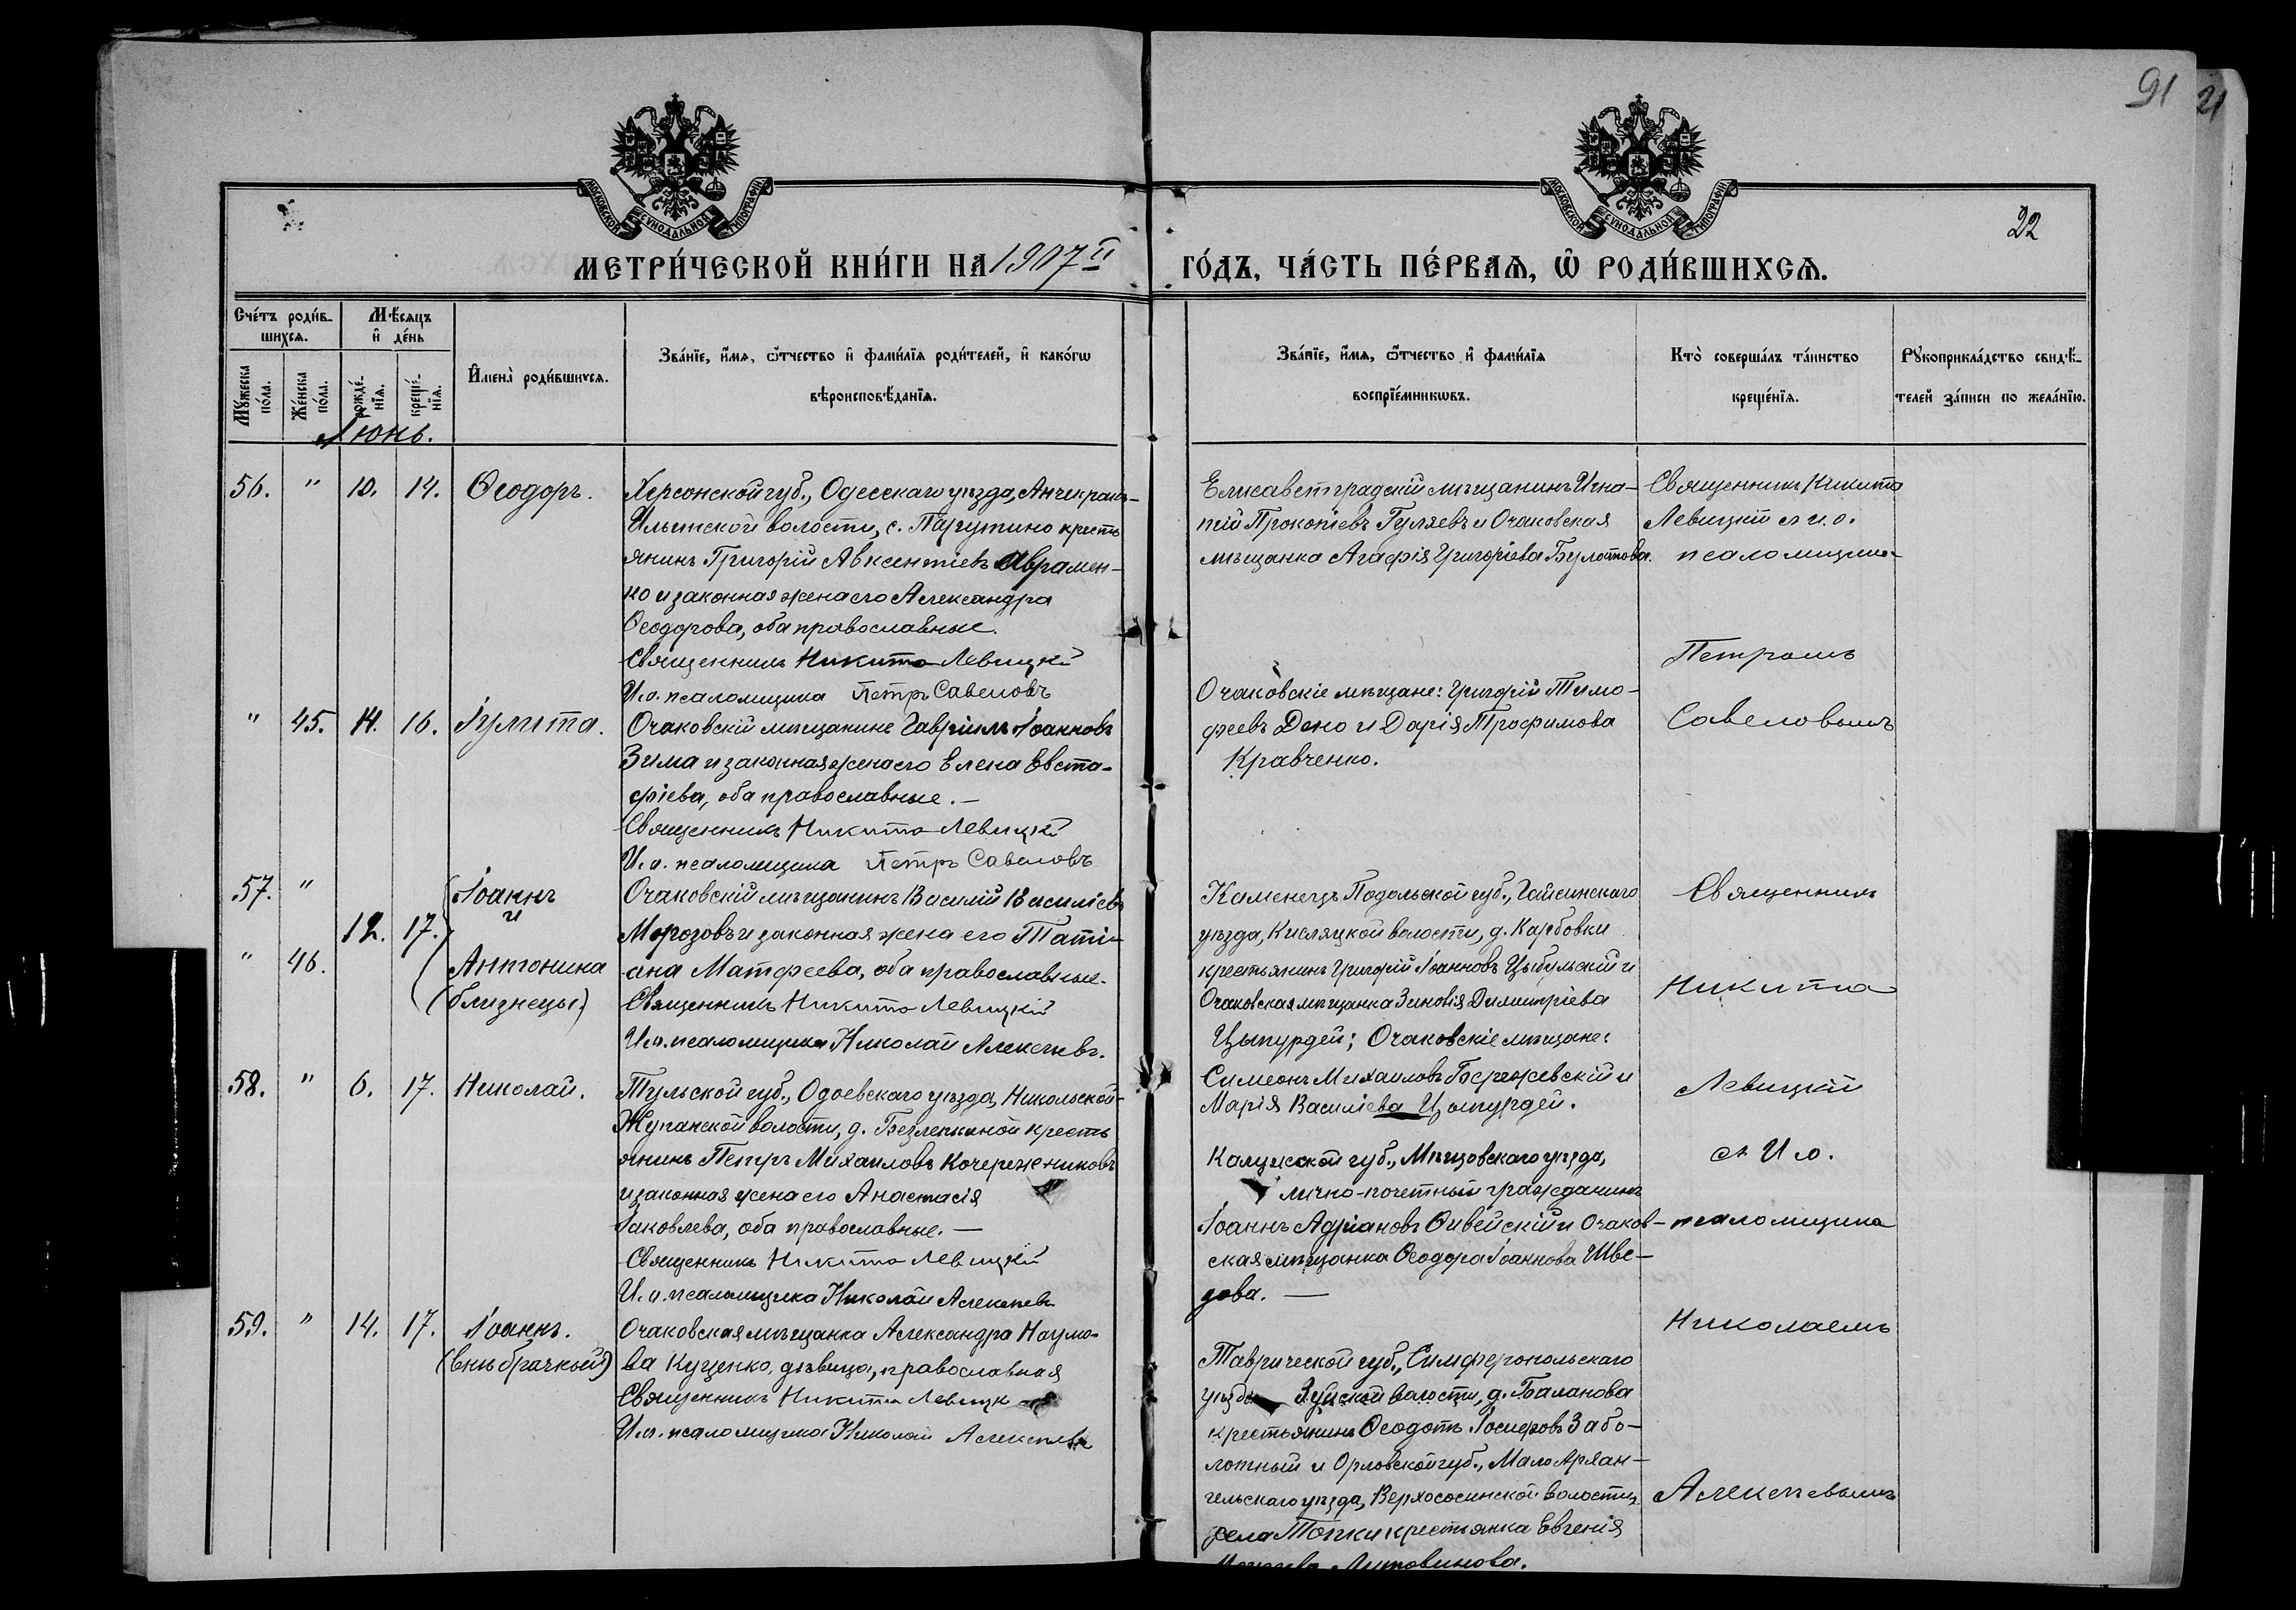 91
21
22
МОСКОВСКОЙ СѴНОДАЛЬНОЙ ТИПОГРАФІИ
МОСКОВСКОЙ СѴНОДАЛЬНОЙ ТИПОГРАФІИ
МЕТРИ́ЧЕСКОЙ КНИ́ГИ НА 1907й
ГО́ДЪ, ЧА́СТЬ ПЕ́РВАѦ, Ѽ РОДИ́ВШИХСѦ.
Сче́тъ роди́в-
шихсѧ.
Мѣ́сѧцъ
и҆ де́нь
Мꙋ́жеска по́ла.
Же́нска по́ла.
рожде́-нїѧ.
креще́-нїѧ.
И҆мена̀ роди́вшихсѧ.
Зва́нїе, и҆́мѧ, ѻ҆́тчество и҆ фами́лїѧ роди́телей, и҆ како́гѡ
вѣроисповѣ́данїѧ.
Зва́нїе, и҆́мѧ, ѻ҆́тчество и҆ фами́лїѧ
воспрїе́мникѡвъ.
Кто̀ соверша́лъ та́инство
креще́нїѧ.
Рꙋкоприкла́дство свидѣ́-
телей за́писи по жела́нїю.
Іюнь.
56. " 10. 14. Ѳеодоръ.
Херсонской губ., Одесскаго уѣзда, Анчекракъ-
Ильинской волости, с. Парутино кресть
янинъ Григорій Авксентіевъ Аврамен-
ко и законная жена его Александра
Ѳеодорова, оба православные.
Священникъ Никита Левицкій
И. о. псаломщика Петръ Савеловъ
Елисаветградскій мѣщанинъ Игна-
тій Прокопіевъ Гуляевъ и Очаковская
мѣщанка Агафія Григоріева Булатова.
Священникъ Никита
Левицкій с и. о.
псаломщика
Петромъ
Савеловымъ
" 45. 14. 16. Іулита.
Очаковскій мѣщанинъ Гавріилъ Іоанновъ
Зима и законная жена его Елена Евста-
фіева, оба православные. —
Священникъ Никита Левицкій
И. о. псаломщика Петръ Савеловъ
Очаковскіе мѣщане: Григорій Тимо-
феевъ Дено и Дарія Трофимова
Кравченко.
57. "
12. 17.
" 46.
Іоаннъ
и
Антонина
(близнецы)
Очаковскій мѣщанинъ Василій Василіевъ
Морозовъ и законная жена его Таті-
ана Матфеева, оба православные.
Священникъ Никита Левицкій
И. о. псаломщика Николай Алексѣевъ.
Каменецъ Подольской губ., Гайсинскаго
уѣзда, Кисляцкой волости, д. Карбовки
крестьянинъ Григорій Іоанновъ Цыбульскій и
Очаковская мѣщанка Зиновія Димитріева
Цыпурдей; Очаковскіе мѣщане:
Симеонъ Михаиловъ Бержевскій и
Марія Василіева Цыпурдей.
Священникъ
Никита
Левицкій
с И. о.
псаломщика
Николаемъ
Алексѣевымъ
58. " 6. 17. Николай.
Тульской губ., Одоевскаго уѣзда, Никольской-
Жупанской волости, д. Безлепкиной кресть
янинъ Петръ Михаиловъ Кочережниковъ
и законная жена его Анастасія
Іаковлева, оба православные. —
Священникъ Никита Левицкій
И. о. псаломщика Николай Алексѣевъ
Калужской губ., Мѣщовскаго уѣзда,
лично-почетный гражданинъ
Іоаннъ Адріановъ Ѳивейскій и Очаков-
ская мѣщанка Ѳеодора Іоаннова Шве-
дова. —
59. " 14. 17. Іоаннъ.
(внѣбрачный)
Очаковская мѣщанка Александра Наумо-
ва Куценко, дѣвица, православная
Священникъ Никита Левицк
И. о. псаломщика Николай Алексѣевъ
Таврической губ., Симферопольскаго
уѣзда Зуйской волости, д. Баланова
крестьянинъ Ѳеодотъ Іосифовъ Забо-
лотный и Орловской губ., Мало Архан-
гельскаго уѣзда, Верхососинской волости,
села Топки крестьянка Евгенія
Литовинова.